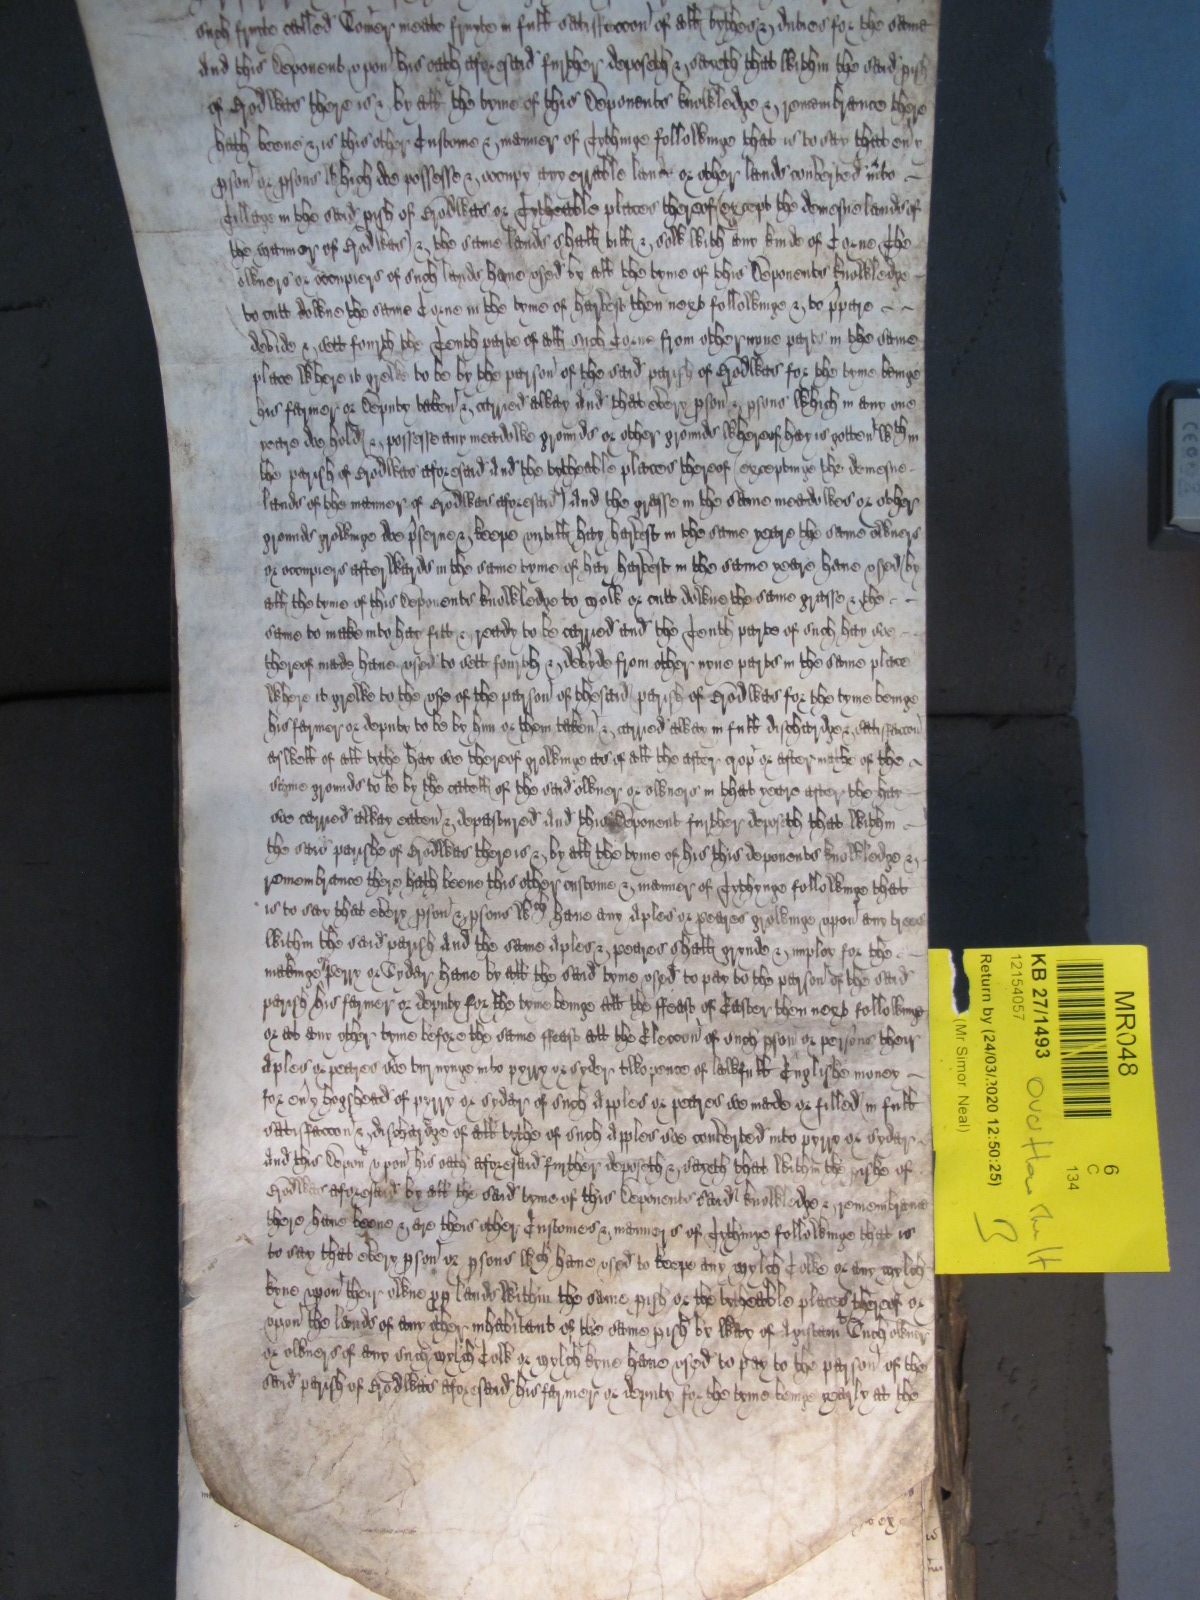 such fruite called Tower meate fruite in full satisfaccon of all tythes & duties for the same
And this Deponent upon his oath aforesaid further deposeth & sayeth that within the said pish
of Rodwas there is & by all the tyme of this Deponents knowledge & remembrance there
hath beene & is this other Custome & manner of Tythinge followinge that is to say that eny
pson or psons which doe possesse & occupy any errable land or other lands converted into
Tillage in the said pish of Rodwas or Tytheable places thereof (except the demesne lands of
the mannor of Rodwas) & the same lands shall till & sow with any kinde of Corne The
owners or occupiers of such lands have used by all the tyme of this Deponents knowledge
to cutt downe the same Corne in the tyme of harvest then next followinge & to ppare
devide & sett fourth the Tenth parte of all such Corne from other nyne parts in the same
place where it grewe to be by the parson of the said parish of Rodwas for the tyme beinge
his farmer or Deputy taken & carried away And that every pson & psons which in any one
yeare doe hold & possesse any meadowe grounds or other grounds whereof hay is gotten wthin
the parish of Rodwas aforesaid And the tytheable places thereof (exceptinge the demesne
lands of the mannor of Rodwas aforesaid) And the grasse in the same meadowes or other
grounds growinge doe pserve & keepe untill hay harvest in the same yeare the same owners
or occupiers afterwards in the same tyme of hay harvest in the same yeare have used by
all the tyme of this Deponents knowledge to mow or cutt downe the same grasse & the
same to make into hay fitt & ready to be carried and the Tenth parte of such hay soe
thereof made have used to sett fourth & devyde from other nyne parts in the same place
where it grewe to the use of the parson of the said parish of Rodwas for the tyme beinge
his farmer or deputy to be by him or them taken & carried away in full dischardge & satisfaccon
aswell of all tythe hay soe thereof growinge as of all the after crop or after mathe of the
same grounds to be by the catell of the said owner or owners in that yeare after the hay
soe carried away eaten & depastured And this Deponent further deposeth that within
the said parishe of Rodwas there is & by all the tyme of his this deponents knowledge &
remembrance there hath beene this other custome & manner of Tythynge followinge that
is to say that every pson & psons wch have any Aples or peares growinge upon any trees
within the said parish And the same Aples & peares shall grynde & imploy for the
makinge Perry or Cydar have by all the said tyme used to pay to the parson of the said
parish his farmer or deputy for the tyme beinge att the ffeast of Easter then next followinge
or at any other tyme before the same ffeast att the Eleccon of such pson or persons their
Aples or peares soe turnynge into pyrry or syder two pence of lawfull Englishe money
for eny hogshead of pyrry or sydar of such Apples or peares soe made or filled in full
satisfaccon & dischardge of all tythe of such Apples soe converted into pyrry or sydar
And this Depont upon his oath aforesaid further deposeth & sayeth that within the pishe of
Rodwas aforesaid by all the said tyme of this Deponents said knowledge & remembrance
there have beene & are theis other Customes & manners of Tythinge followinge that is
to say that every pson or psons wch have used to keepe any mylch Cowe or any mylch
kyne upon their owne pp lands within the same pish or the tytheable places thereof or
upon the lands of any other inhabitant of the same pish by way of Agistamt Such owner
or owners of any such mylch Cow or mylch kyne have used to pay to the parson of the
said parish of Rodwas aforesaid his farmer or deputy for the tyme beinge yearly at the
MR048
6
C
134
KB 27/1493
12154057
Return by (24/03/2020 12:50:25)
(Mr Simon Neal)